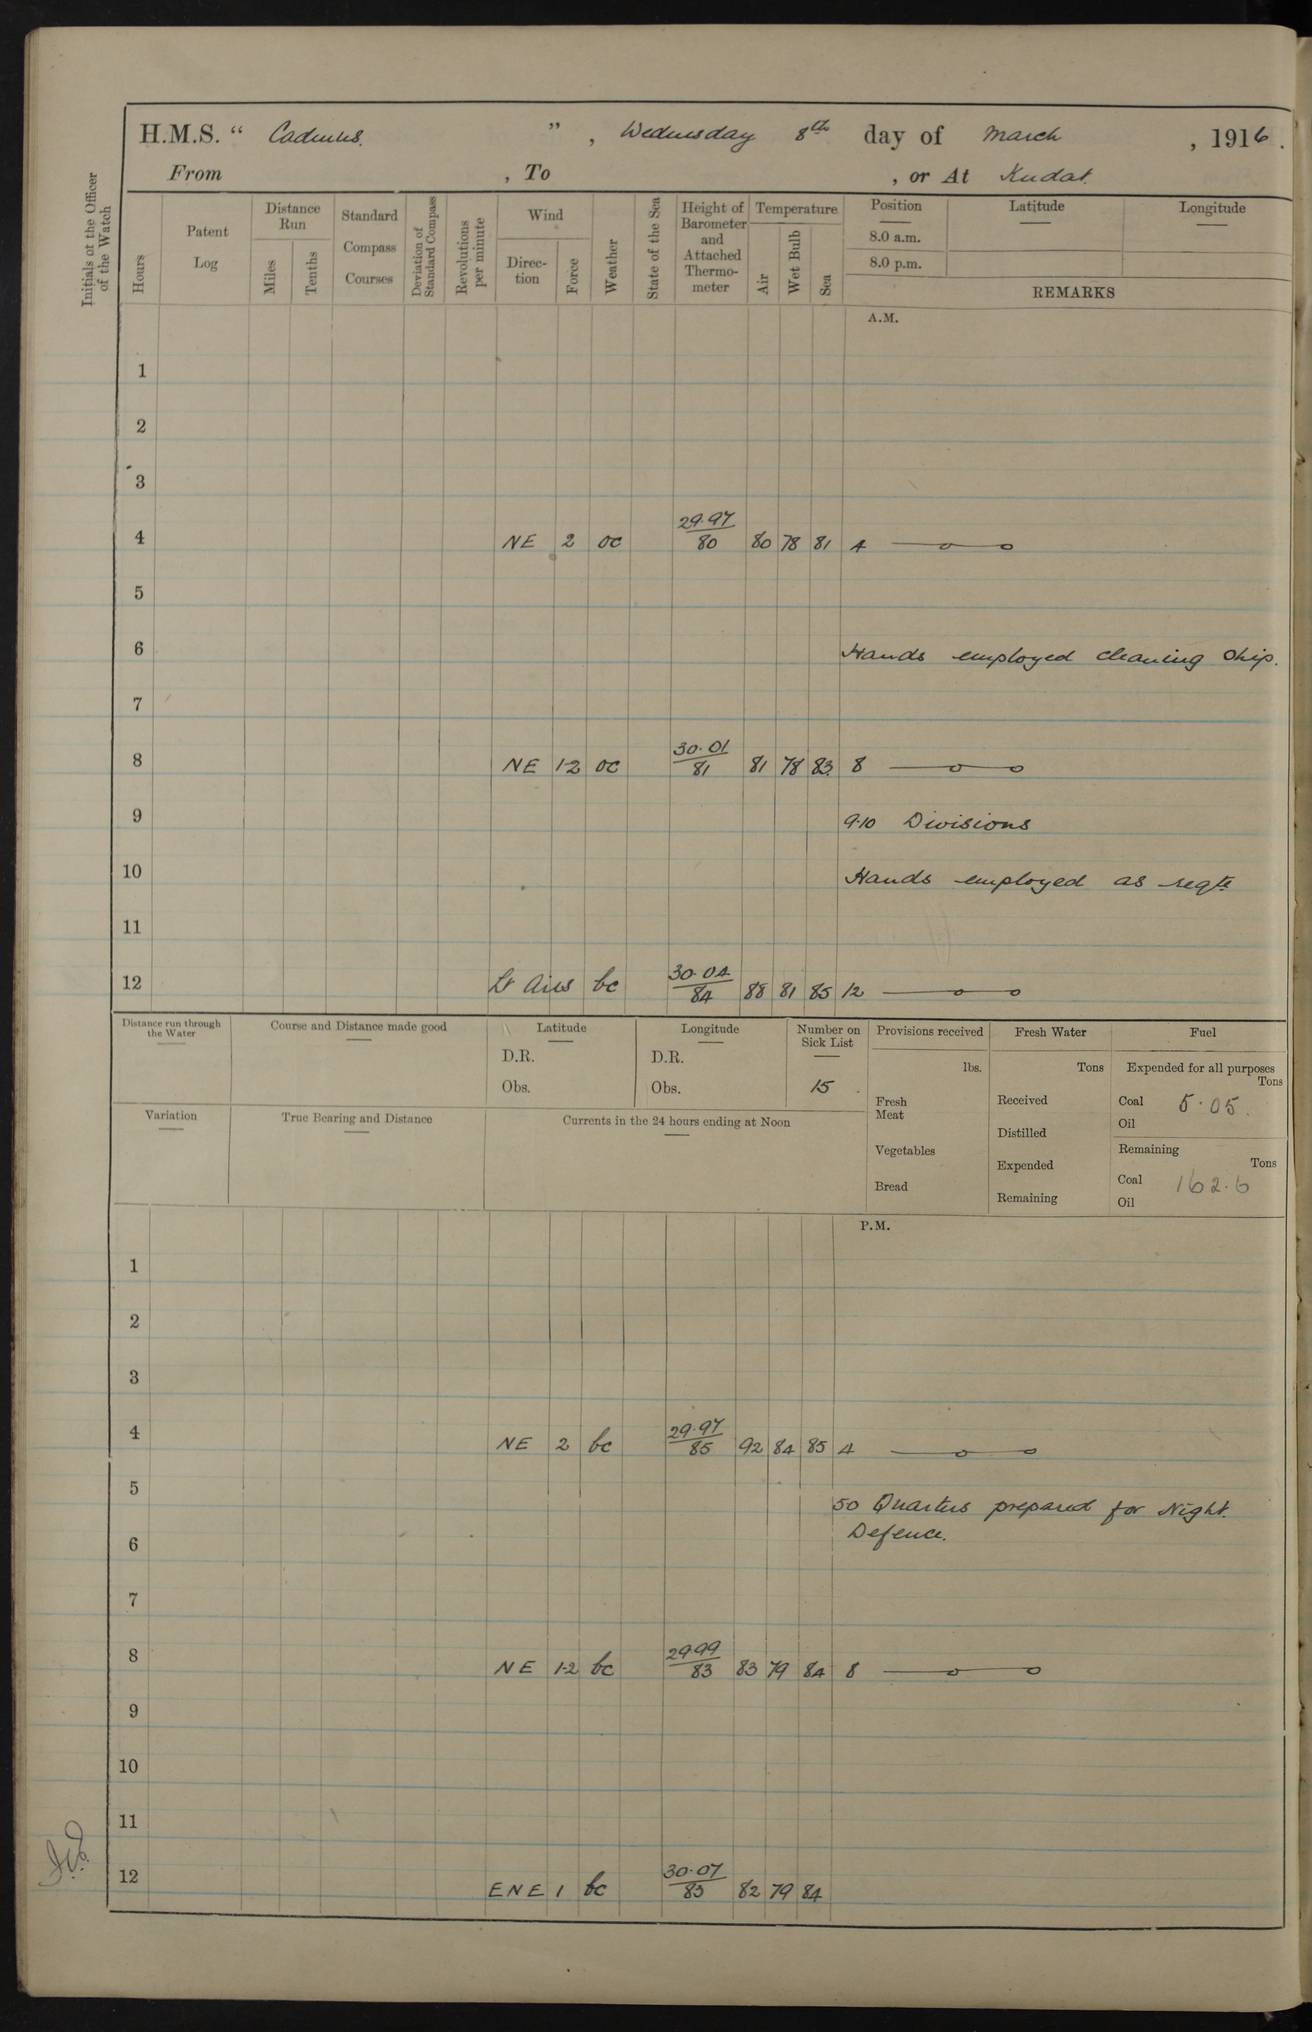 H.M.S. "Cadmus.", Wednesday 8th day of March, 1916.
From , To , or At Kudat.
Initials of the Officer of the Watch
Hours
Patent Log
Distance Run
Miles
Tenths
Standard Compass Courses
Deviation of Standard Compass
Revolutions per minute
Wind
Direction
Force
Weather
State of the Sea
Height of Barometer and Attached Thermometer
Temperature
Air
Wet Bulb
Sea
Position Latitude Longitude
8.0 a.m.
8.0 p.m.
REMARKS
A.M.
1
2
3
4 NE 2 oc 29.97/80 80 78 81 4
5
6 Hands employed cleaning Ship.
7
8 NE 1-2 oc 30.01/81 81 78 83 8
9 9.10 Divisions
10 Hands employed as reqte
11
12 Lt Airs bc 30.04/84 88 81 85 12
Distance run through the Water
Course and Distance made good
Latitude
D.R.
Obs.
Longitude
D.R.
Obs.
Number on Sick List
15
Provisions received
lbs.
Fresh Meat
Vegetables
Bread
Fresh Water
Tons
Received
Distilled
Expended
Remaining
Fuel
Expended for all purposes
Tons
Coal 5.05
Oil
Remaining
Tons
Coal 162.6
Oil
Variation
True Bearing and Distance
Currents in the 24 hours ending at Noon
P.M.
1
2
3
4 NE 2 bc 29.97/85 92 84 85 4
5 50 Quarters prepared for Night
6 Defence.
7
8 NE 1-2 bc 29.99/83 83 79 84 8
9
10
11
12 ENE 1 bc 30.07/83 82 79 84